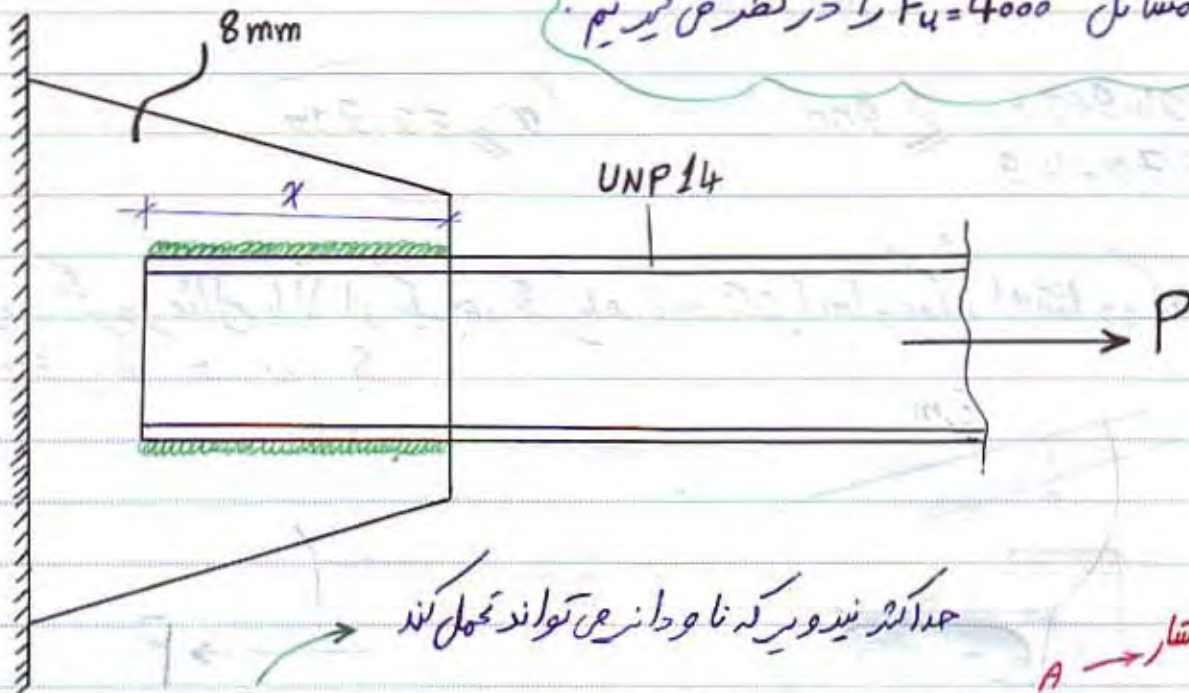 مسائل Fu=4000 را در نظر می گیریم.
8 mm
x
UNP 14
P
حداکثر نیرویی که ناودانی می تواند تحمل کند
A